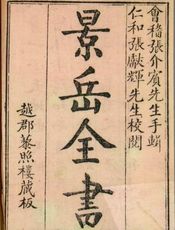 會稽張介賓先生手輯
仁和張獻輝先生校閱
景岳全書
越郡藜照樓藏板